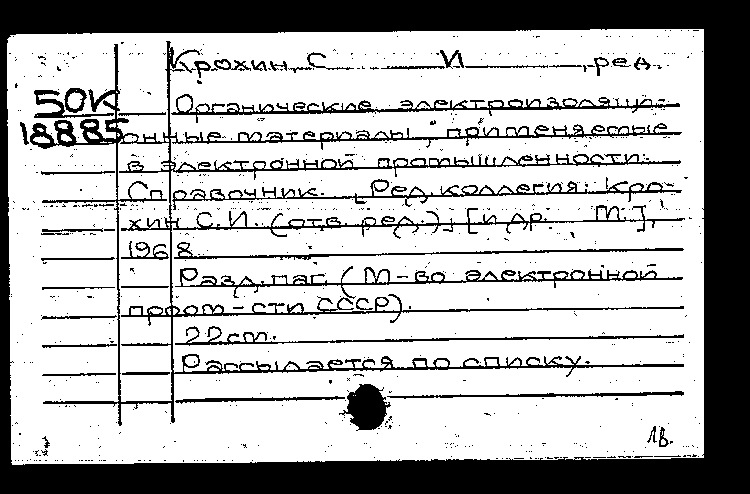 Крохин, С И , ред.
50К
Органические электроизоляци-
18885
онные материалы, применяемые
в электронной промышленности.
Справочник. [Ред. коллегия: Кро-
хин С.И. (отв. ред.)] [и др. М.],
1968
Разд. паг. (М-во электронной
пром-сти СССР).
22 cm.
Рассылается по списку.
1в.